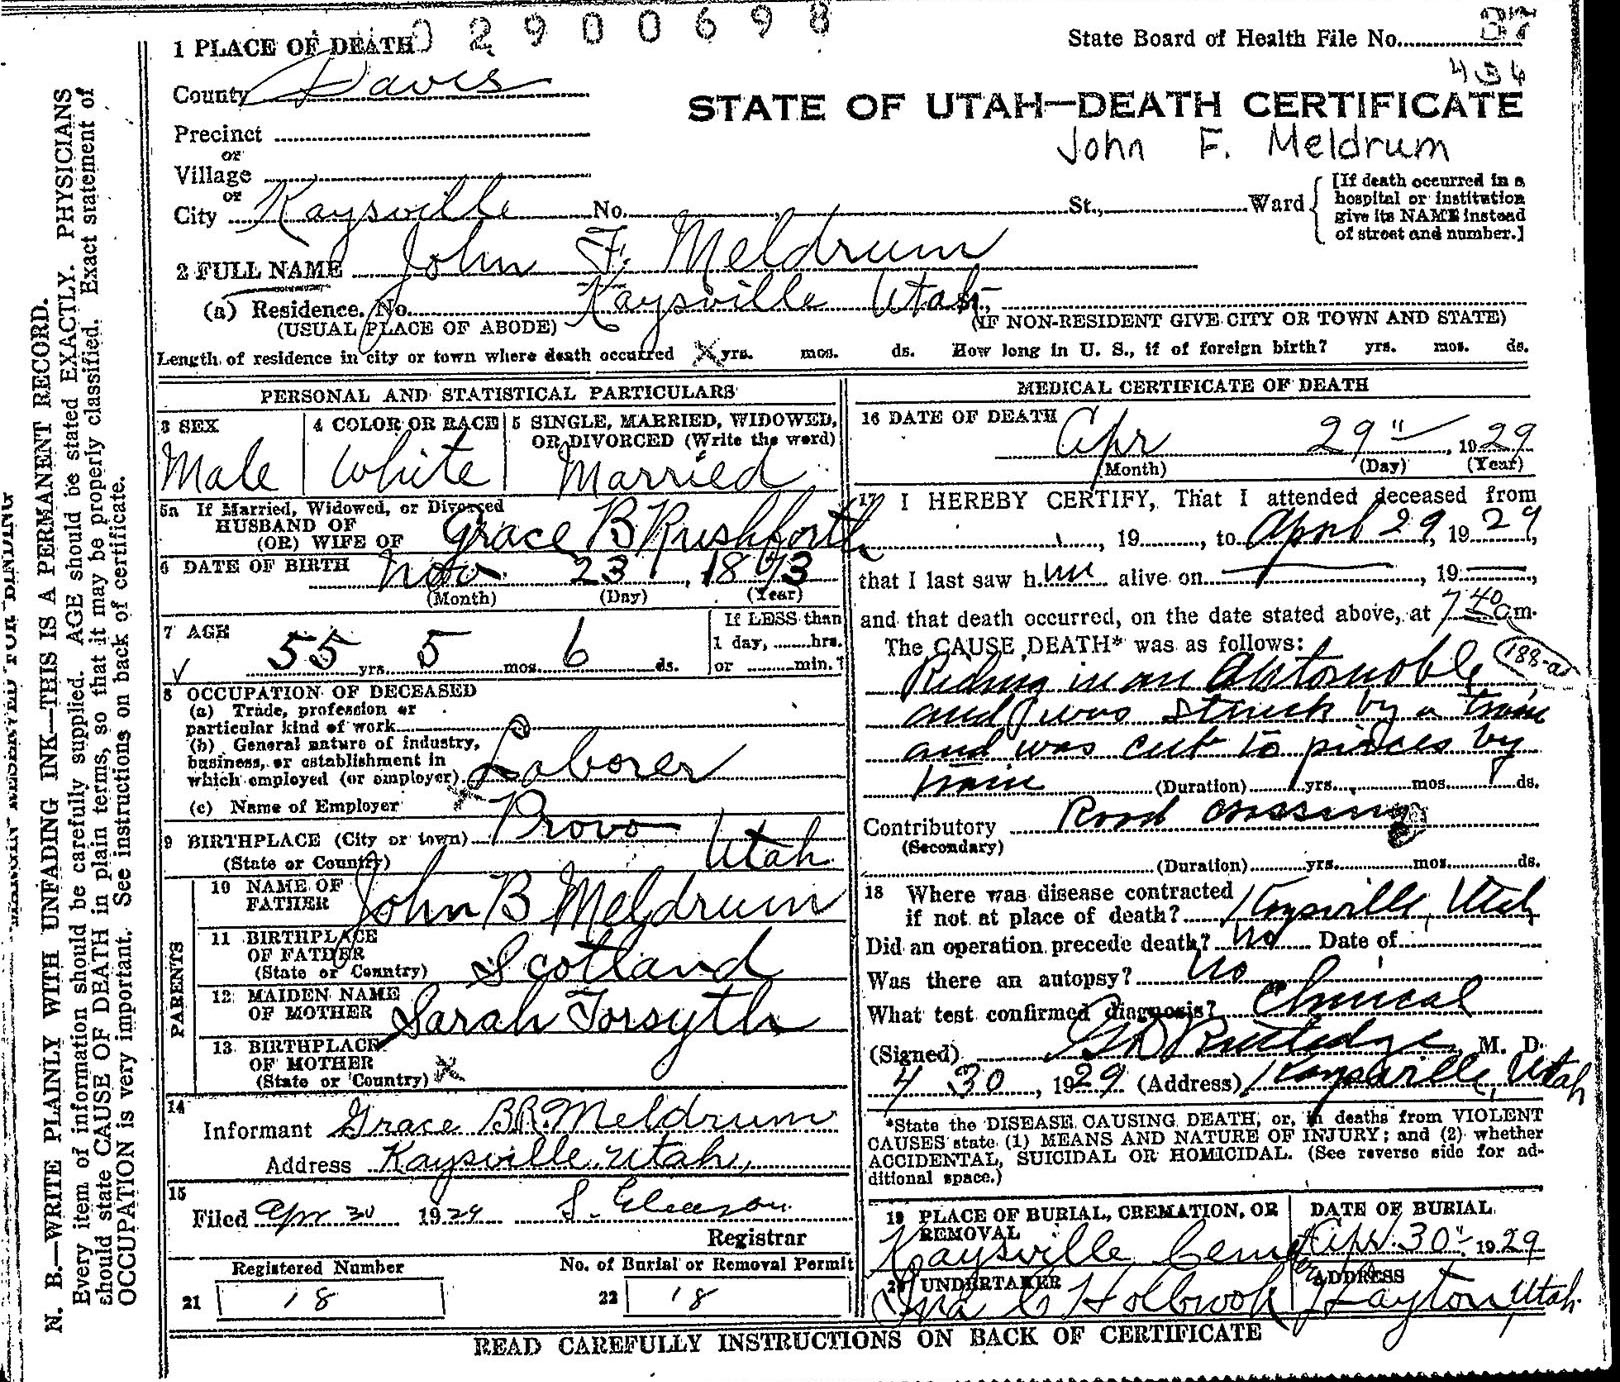 02900698
1 PLACE OF DEATH
State Board of Health File No. 37
436
County Davis
STATE OF UTAH—DEATH CERTIFICATE
Precinct
John F. Meldrum
or
Village
or
City Kaysville No. St., Ward
[If death occurred in a
hospital or institution
give its NAME instead
of street and number.]
2 FULL NAME John F. Meldrum
(a) Residence. No. Kaysville Utah St.,
(USUAL PLACE OF ABODE) (IF NON-RESIDENT GIVE CITY OR TOWN AND STATE)
Length of residence in city or town where death occurred X yrs. mos. ds. How long in U. S., if of foreign birth? yrs. mos. ds.
PERSONAL AND STATISTICAL PARTICULARS
3 SEX
Male
4 COLOR OR RACE
White
5 SINGLE, MARRIED, WIDOWED,
OR DIVORCED (Write the word)
Married
5a If Married, Widowed, or Divorced
HUSBAND OF
(OR) WIFE OF Grace B Rushforth
6 DATE OF BIRTH Nov 23, 1873
(Month) (Day) (Year)
7 AGE
55 yrs. 5 mos. 6 ds.
If LESS than
1 day, hrs.
or min.?
8 OCCUPATION OF DECEASED
(a) Trade, profession or
particular kind of work
(b) General nature of industry,
business, or establishment in
which employed (or employer) Laborer
(c) Name of Employer
9 BIRTHPLACE (City or town) Provo
(State or Country) Utah
PARENTS
10 NAME OF
FATHER John B Meldrum
11 BIRTHPLACE
OF FATHER
(State or Country) Scotland
12 MAIDEN NAME
OF MOTHER Sarah Forsyth
13 BIRTHPLACE
OF MOTHER
(State or Country) X
14
Informant Grace B.R. Meldrum
Address Kaysville, Utah,
15
Filed Apr 30 1929 S. Gleason
Registrar
Registered Number
21 18
No. of Burial or Removal Permit
22 18
MEDICAL CERTIFICATE OF DEATH
16 DATE OF DEATH
Apr 29", 1929
(Month) (Day) (Year)
17 I HEREBY CERTIFY, That I attended deceased from
, 19, to April 29, 1929,
that I last saw him alive on, 19,
and that death occurred, on the date stated above, at 7 40 m.
The CAUSE DEATH* was as follows:
188-a
Riding in an Automobile
and was struck by a train
and was cut to pieces by
train
(Duration) yrs. mos. ds.
Contributory Road crossing
(Secondary)
(Duration) yrs. mos. ds.
18 Where was disease contracted
if not at place of death? Kaysville, Utah
Did an operation precede death? No Date of
Was there an autopsy? No
What test confirmed diagnosis? Clinical
(Signed) Rutledge M. D.
4 30, 1929 (Address) Kaysville, Utah
*State the DISEASE CAUSING DEATH, or, in deaths from VIOLENT
CAUSES state (1) MEANS AND NATURE OF INJURY; and (2) whether
ACCIDENTAL, SUICIDAL OR HOMICIDAL. (See reverse side for ad-
ditional space.)
19 PLACE OF BURIAL, CREMATION, OR
REMOVAL
Kaysville Cem
DATE OF BURIAL
Apr. 30" 1929
20 UNDERTAKER
Ira C Holbrook
ADDRESS
Layton, Utah
READ CAREFULLY INSTRUCTIONS ON BACK OF CERTIFICATE
MARGIN RESERVED FOR BINDING
N. B.—WRITE PLAINLY WITH UNFADING INK—THIS IS A PERMANENT RECORD.
Every item of information should be carefully supplied. AGE should be stated EXACTLY. PHYSICIANS
should state CAUSE OF DEATH in plain terms, so that it may be properly classified. Exact statement of
OCCUPATION is very important. See instructions on back of certificate.